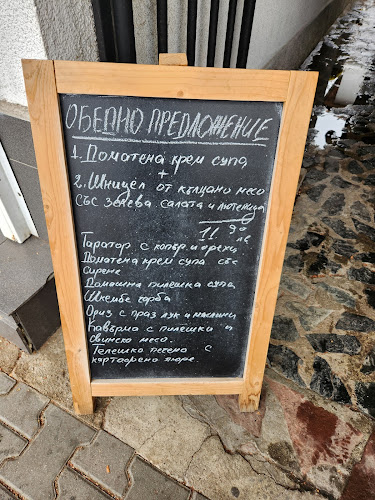 ОБЕДНО ПРЕДЛОЖЕНИЕ
1. Доматена крем супа
+
2. Шницел от кълцано месо
със зелева салата и лютеница
11 90 лв
Таратор с копър и орехи
Доматена крем супа със
сирене
Домашна пилешка супа
Шкембе чорба
Ориз с праз лук и маслини
Кавърма с пилешко и
свинско месо.
Телешко печено с
картофено пюре.